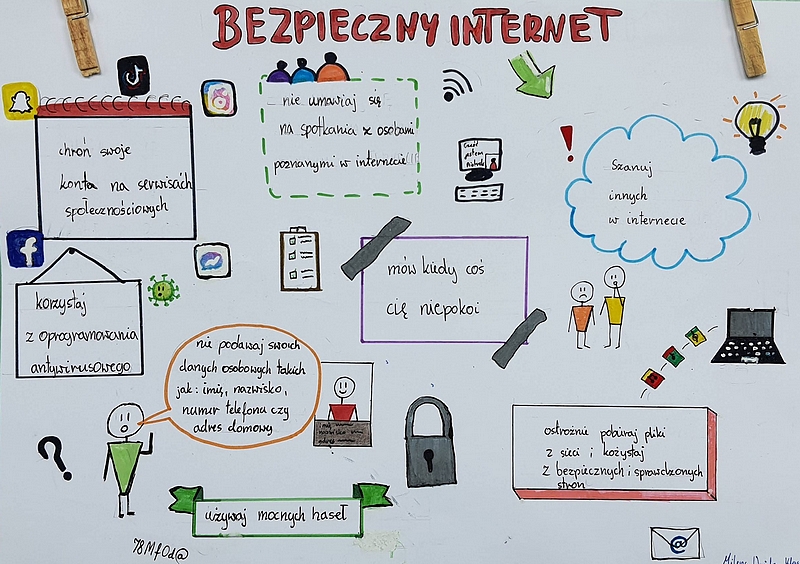 BEZPIECZNY INTERNET
chroń swoje
konta na serwisach
społecznościowych
nie umawiaj się
na spotkania z osobami
poznanymi w internecie!!!
Szanuj
innych
w internecie
korzystaj
z oprogramowania
antywirusowego
mów kiedy coś
cię niepokoi
nie podawaj swoich
danych osobowych takich
jak: imię, nazwisko,
numer telefonu czy
adres domowy
ostrożnie pobieraj pliki
z sieci i kożystaj
z bezpiecznych i sprawdzonych
stron
używaj mocnych haseł
78MfOd@